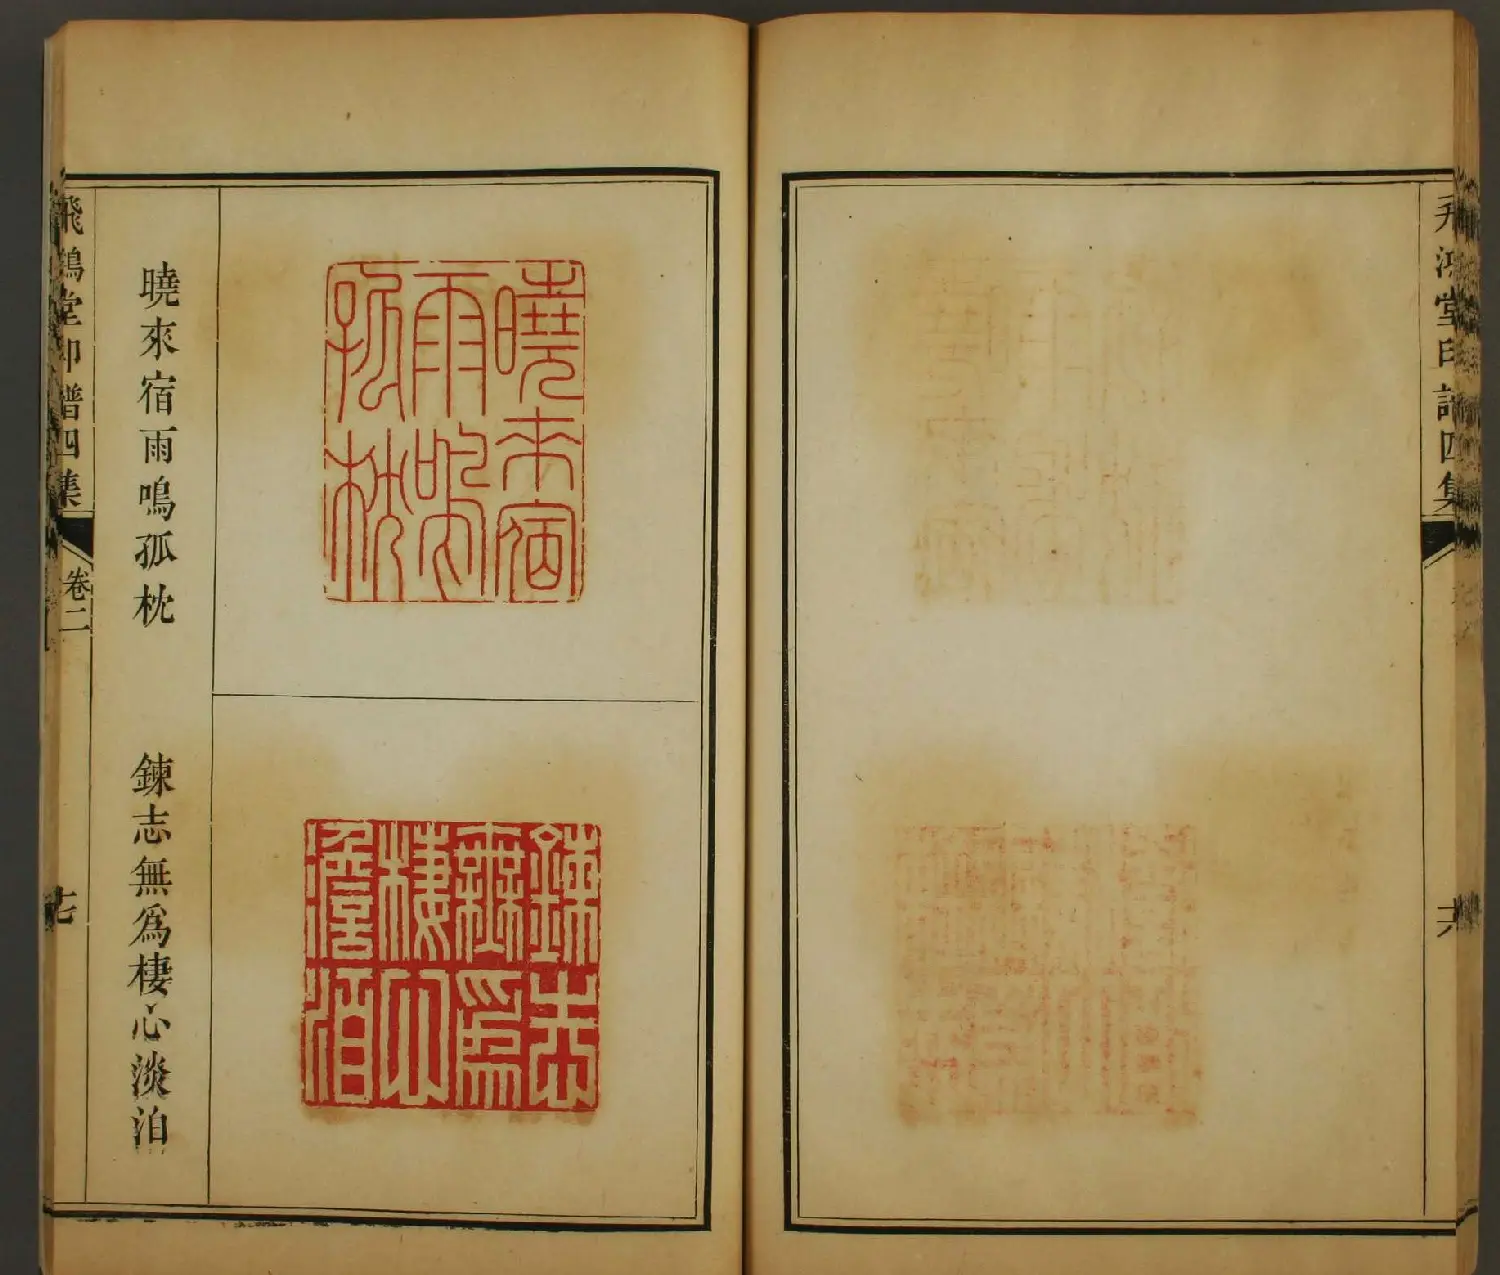 飛鴻堂印譜四集
曉來宿雨鳴孤枕
鍊志無爲棲心淡泊
曉來宿
雨鳴
孤枕
鍊志
無爲
棲心
澹泊
飛鴻堂印譜四集
卷二
七